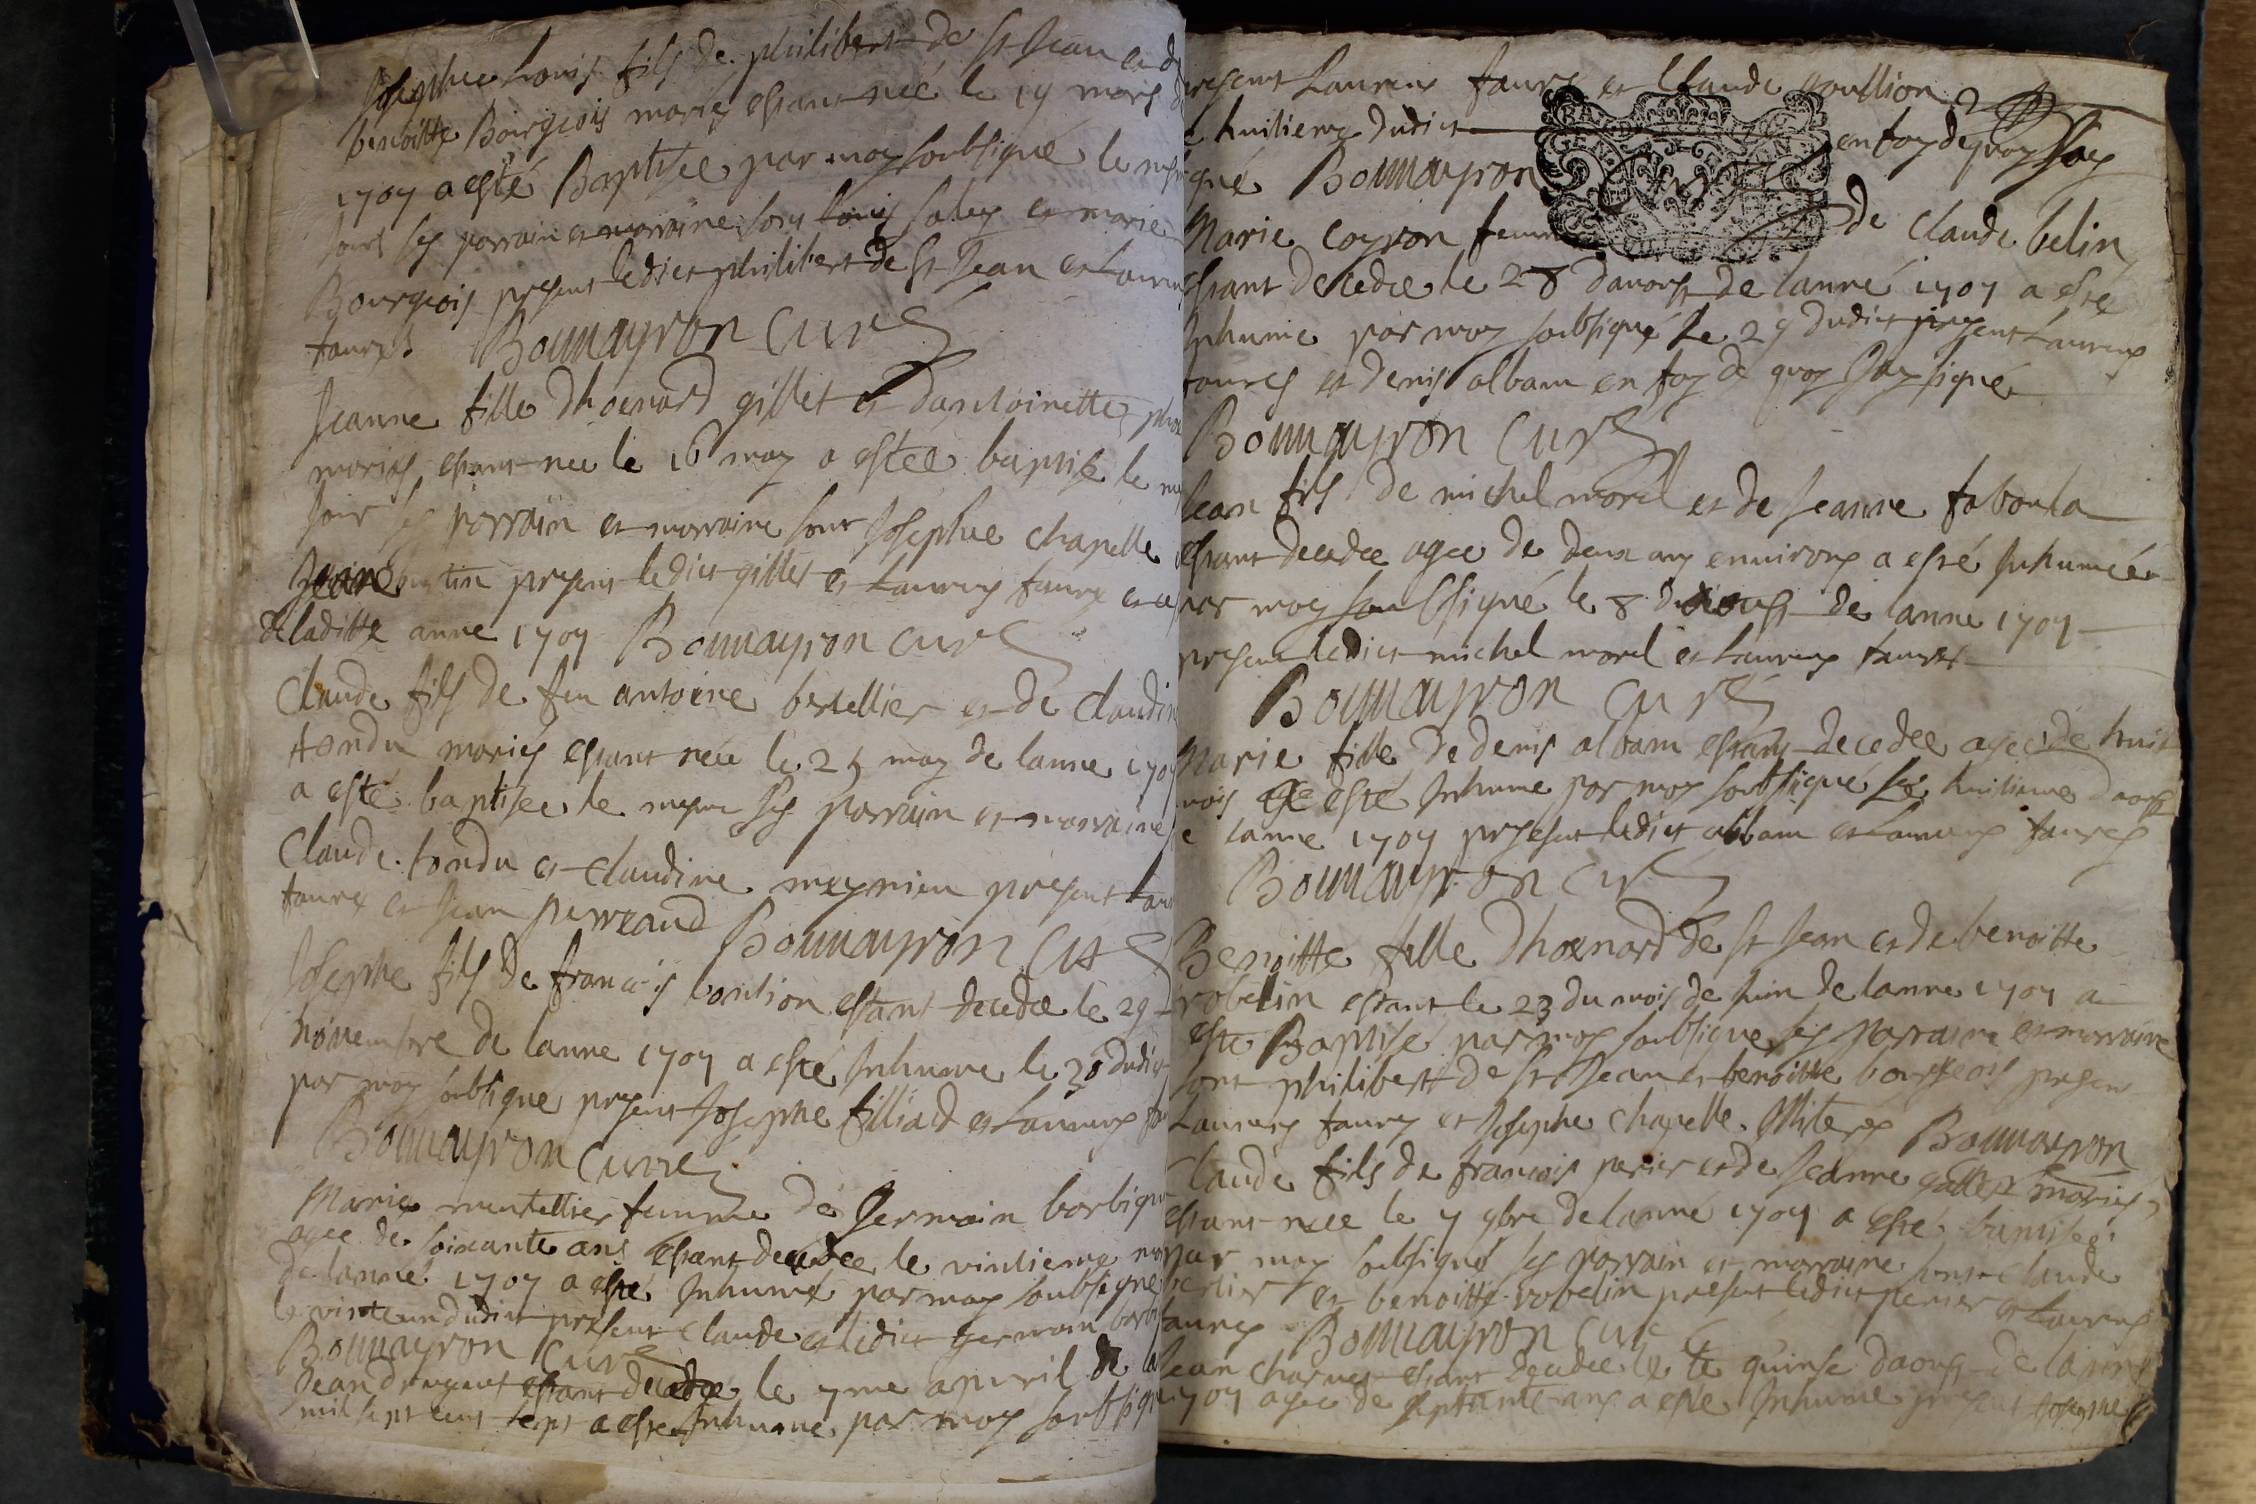 Josephe Louis fils de philibert de st Jean et de
benoitte Bourgeois mariez estant neé le 19 mars
1707 a esté Baptisee par moy soubsigné le
Jours ses parrain et marraine sont Louis et marie
Bourgeois present ledict philibert de st Jean et Laurens
faures Boumayron Curé
Jeanne fille dhoenard gillet et dantoinette
mariés estant nee le 16 may a esteé baptise le
Jour ses parrain et marraine sont Josephe chapelle
present ledict gillet et Laurens faures
de laditte anne 1707 Boumayron curé
Claude fils de feu antoine bertellier et de Claudine
tondu mariés estant neée le 25 may de lanne 1707
a esté baptisee le mesme ses parrain et marraine
Claude tondu et Claudine meynieu present
faures et Jean perreaud Boumayron Curé
Josephe fils de francois estant decedee le 29
novembre de lanne 1707 a esté Inhume le 30 dudict
par moy soubsigne present Josephe filliard et Laurens
Boumayron Curé
Marie femme de Germain
agee de soixante ans estant decedee le vintieme
de lanneé 1707 a esté Inhumé par moy soubsigne
le vinteun dudict present Claude et ledict germain
Boumayron Curé
Jean estant decedee le 7me apvril de la
mil sept cent sept a este Inhume par moy soubsigne
present Laurens faures et Claude
huitieme dudict en foy de quoy Jay
signé Boumayron Curé
Marie coyron femme de Claude belin
estant decedee le 28 davoust de lanné 1707 a esté
Inhume par moy soubsigné le 29 dudict present Laurens
faures et denis albam en foy de quoy Jay signé
Boumayron Curé
Jean fils de michel morel et de Jeanne taboula
estant decedee agee de deux ans environs a esté Inhumeé
par moy soubsigné le 8 daoust de lanne 1707
present ledict michel morel et Laurens faures
Boumayron Curé
Marie fille de denis albam estant decedee agee de huit
mois esté Inhume par moy soubsigné le huitieme daoust
de lanne 1707 present ledict albam et Laurens faures
Boumayron Curé
Benoitte fille dhoenard de st Jean et de benoitte
robelin estant le 23 du mois de Juin de lanne 1707 a
esté Baptisé par moy soubsigne ses parrain et marraine
sont philibert de st Jean et benoitte bourgeois present
Laurens faures et Josephe chapelle Boumayron
Claude fils de francois perier et de Jeanne gallet mariés
estant neee le 7 9bre de lanné 1707 a esté baptiseé
par moy soubsigné ses parrain et marraine sont Claude
perier et benoitte robelin present ledict perier et Laurens
faures Boumayron Curé
Jean estant decedee le quinse daoust de lanne
1707 agee de septante ans a esté Inhume present Josephe